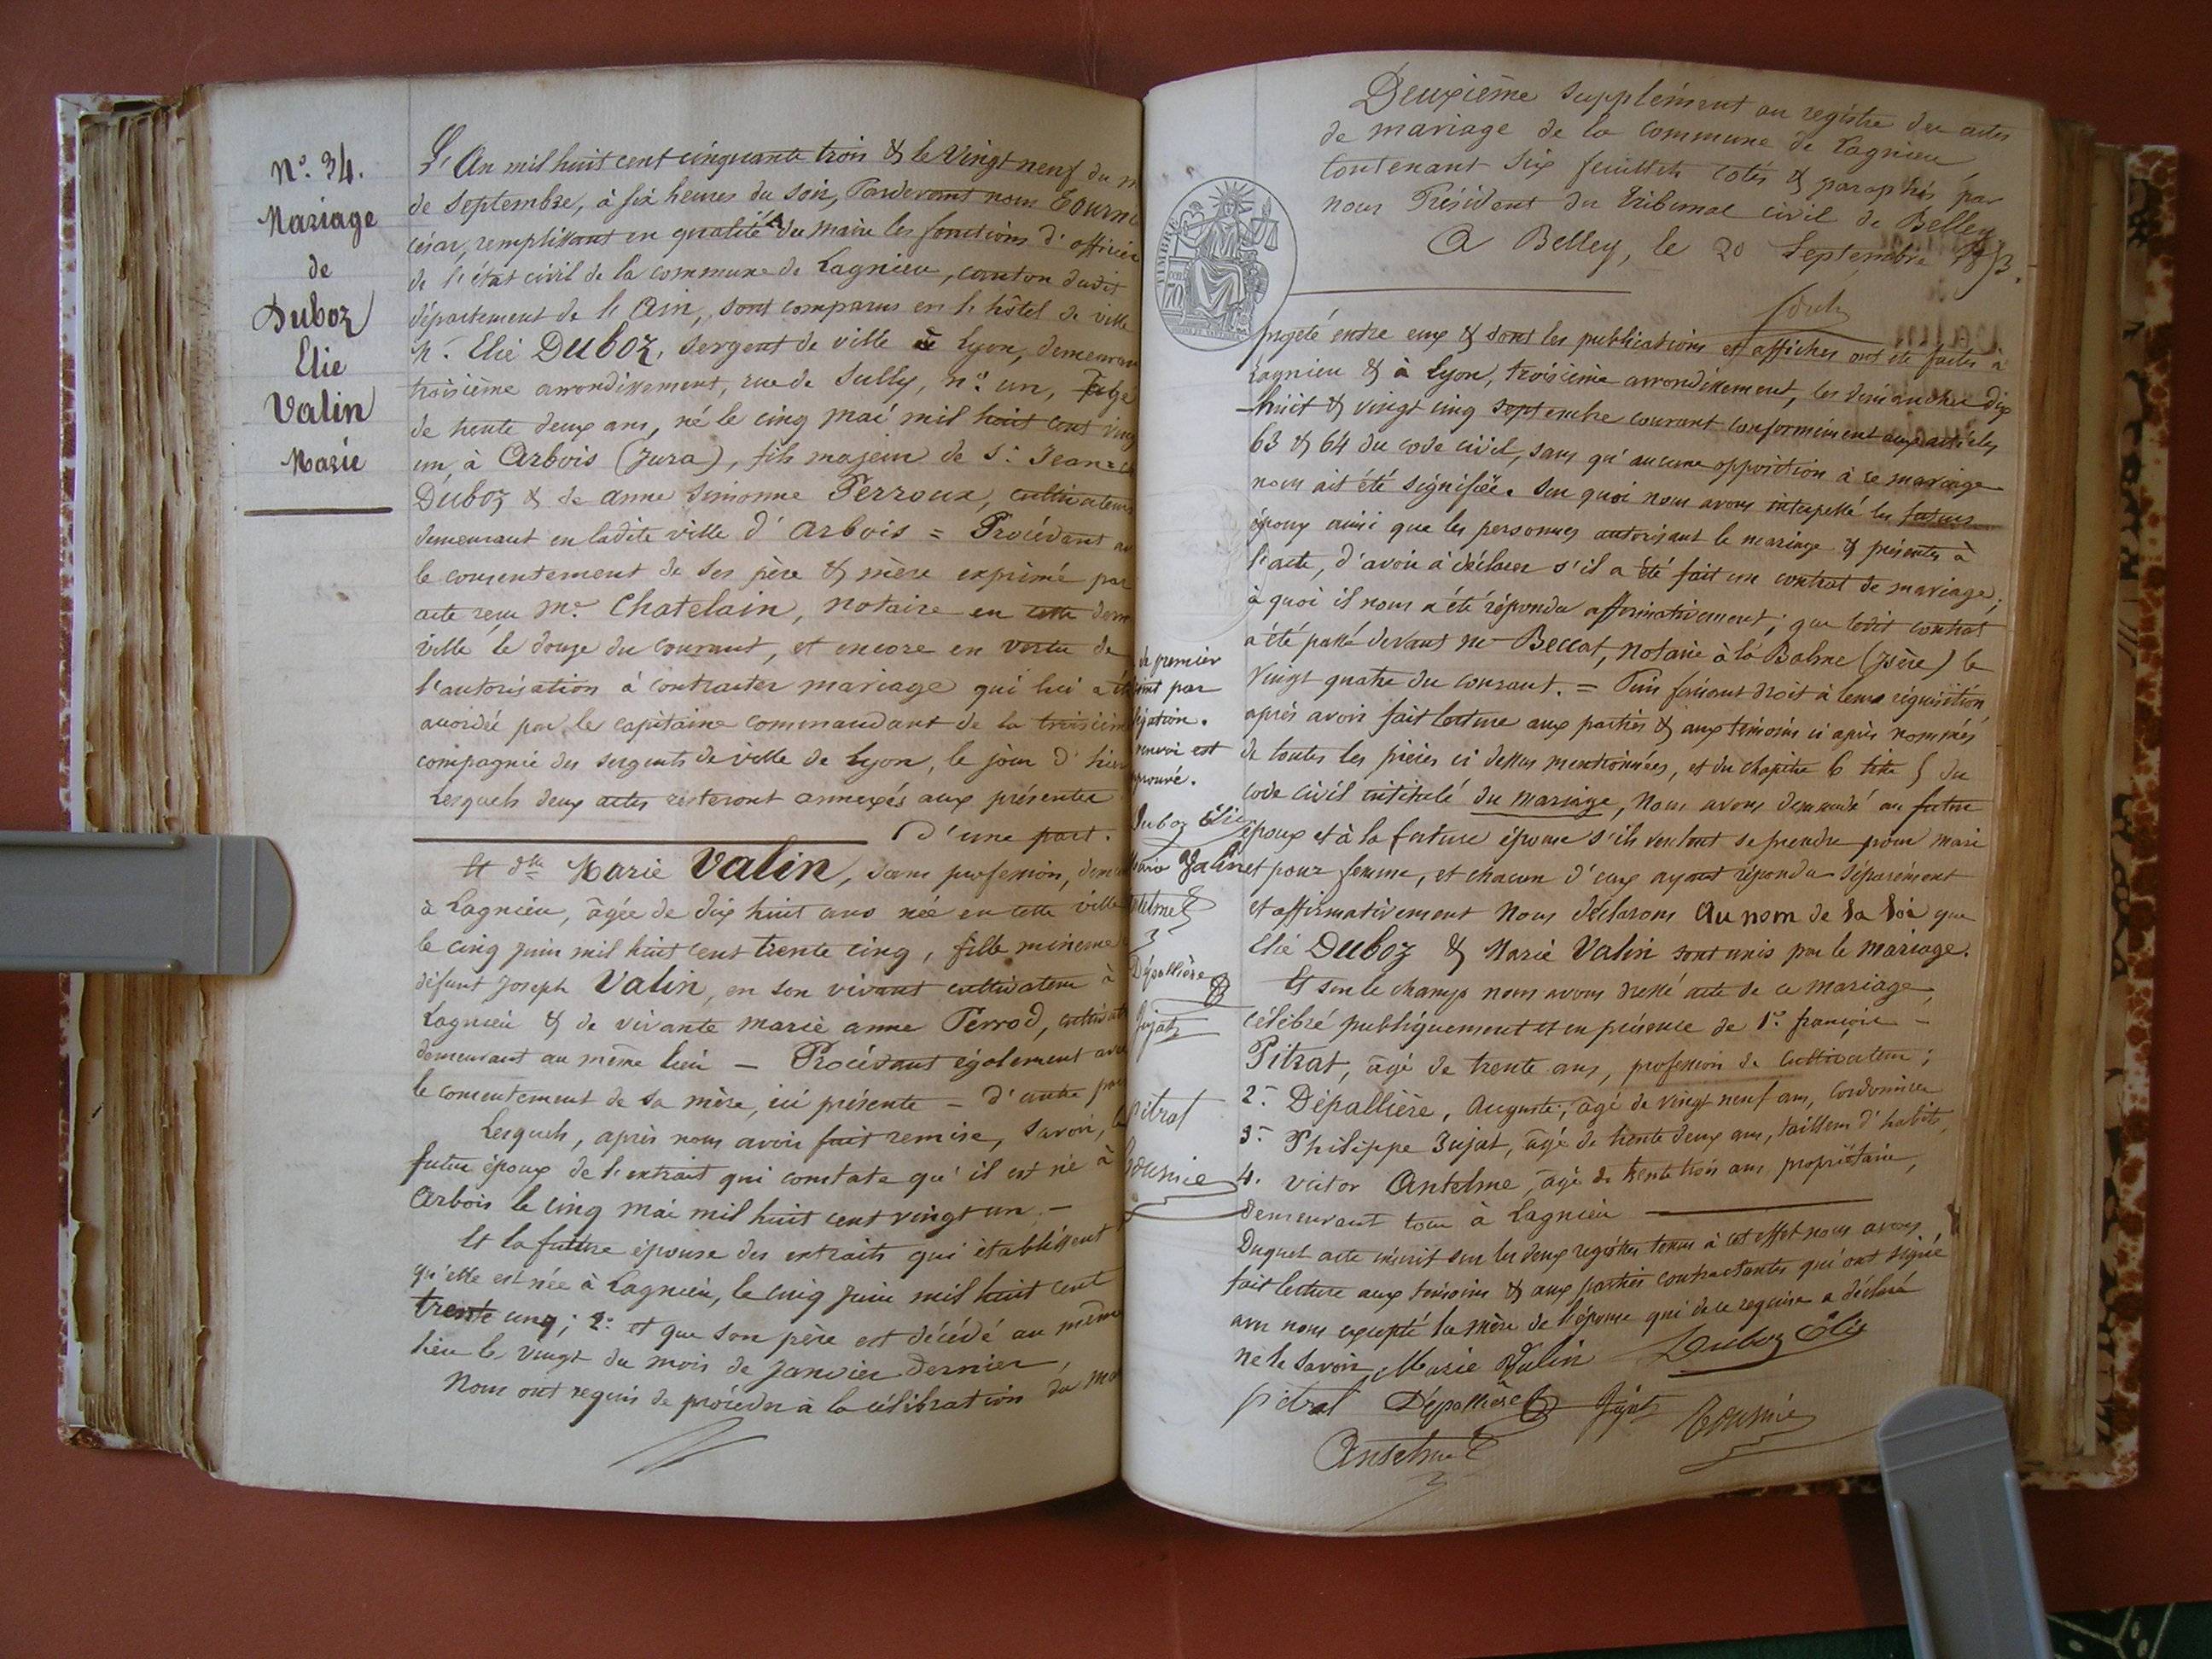 N.º 34.
Mariage
de
Duboz
Elie
Valin
Marie
L'An mil huit cent cinquante trois & le Vingt neuf du
de septembre, à six heures du soir, Pardevant nous
césar, remplissant en qualité du maire les fonctions d'officier
de l'état civil de la commune de Lagnieu, canton dudit
département de l'Ain, sont comparus en l'hôtel de ville
Mr. Elie Duboz, sergent de ville à Lyon, demeurant
troisième arrondissement, rue de Sully, n.º un,
de trente deux ans, né le cinq mai mil huit cent vingt
un, à Arbois (Jura), fils majeur de Sr. Jean
Duboz & de anne simonne Perroux, cultivateurs
demeurant en ladite ville d'Arbois = Procédant
le consentement de ses père & mère exprimé par
acte reçu Me. Chatelain, notaire en cette
ville le douze du courant, et encore en vertu de
l'autorisation à contracter mariage qui lui a été
accordée par le capitaine commandant de la troisième
compagnie des sergents de ville de Lyon, le jour d'hier
Lesquels deux actes resteront annexés aux présentes
d'une part.
Et dlle Marie Valin, sans profession,
à Lagnieu, âgée de dix huit ans née en cette ville
le cinq juin mil huit cent trente cinq, fille mineure
défunt Joseph Valin, en son vivant cultivateur à
Lagnieu & de vivante marie anne Perrod,
demeurant au même lieu — Procédant également avec
le consentement de sa mère, ici présente — d'autre part
Lesquels, après nous avoir fait remise, savoir, le
futur époux de l'extrait qui constate qu'il est né à
Arbois le cinq mai mil huit cent vingt un —
Et la future épouse des extraits qui établissent
qu'elle est née à Lagnieu, le cinq juin mil huit cent
trente cinq; 2.º et que son père est décédé au même
lieu le vingt du mois de janvier dernier,
Nous ont requis de procéder à la célébration du
Deuxième supplément au registre des actes
de mariage de la commune de Lagnieu
contenant six feuillets cotés & paraphés par
nous Président du Tribunal civil de Belley
A Belley, le 20 Septembre 1853.
TIMBRE
projeté entre eux & dont les publications et affiches ont été faites à
Lagnieu & à Lyon, troisième arrondissement, les dimanches dix
huit & vingt cinq septembre courant conformément aux articles
63 & 64 du code civil, sans qu'aucune opposition à ce mariage
nous ait été signifiée. Sur quoi nous avons interpellé les futurs
époux ainsi que les personnes autorisant le mariage & présentes à
l'acte, d'avoir à déclarer s'il a été fait un contrat de mariage;
à quoi il nous a été répondu affirmativement; que ledit contrat
a été passé devant me Beccat, notaire à la Balme (Isère) le
vingt quatre du courant. = Puis faisant droit à leur réquisition
après avoir fait lecture aux parties & aux témoins ci après nommés
de toutes les pièces ci dessus mentionnées, et du chapitre 6 titre 5 du
code civil intitulé du mariage, nous avons demandé au futur
époux et à la future épouse s'ils veulent se prendre pour mari
et pour femme, et chacun d'eux ayant répondu séparément
et affirmativement Nous déclarons Au nom de la loi que
Elie Duboz & Marie Valin sont unis par le mariage.
Et sur le champ nous avons dressé acte de ce mariage,
célébré publiquement et en présence de 1.º françois
Pitrat, âgé de trente ans, profession de cultivateur;
2.º Dépallière, Auguste, âgé de vingt neuf ans, cordonnier
3.º Philippe Jujat, âgé de trente deux ans, tailleur d'habits,
4. victor Antelme, âgé de trente trois ans propriétaire,
demeurant tous à Lagnieu
Duquel acte inscrit sur les deux registres tenus à cet effet nous avons
fait lecture aux témoins & aux parties contractantes qui ont signé
avec nous excepté la mère de l'épouse qui de ce requise a déclaré
ne le savoir. Marie Valin Duboz Elie
pitrat Dépallière Jujat Tournié
Antelme
premier
par
renvoi est
Duboz Elie
Valin
Dépallière
Jujat
pitrat